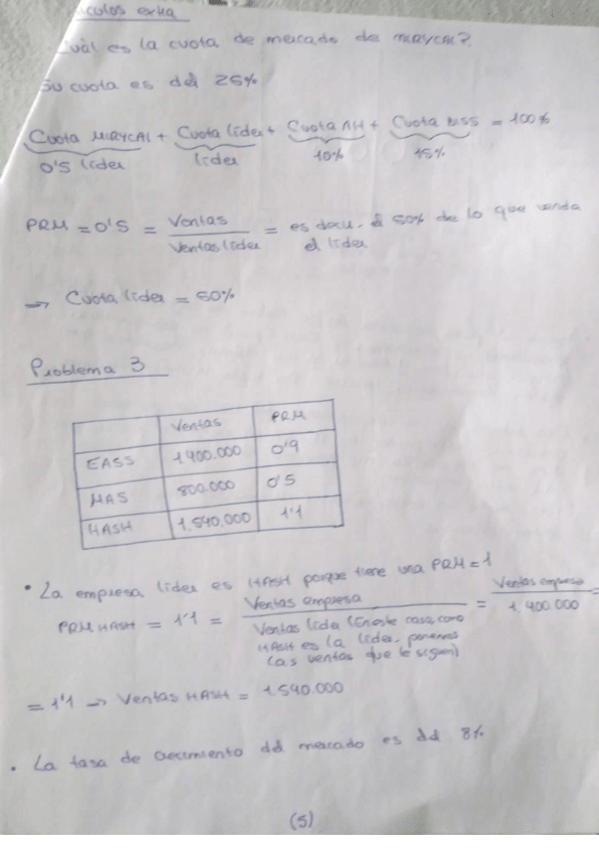 culos extra
uál es la cuota de mercado de MIRYCAL?
Su cuota es del 25%
Cuota MIRYCAL + Cuota líder + Cuota AH + Cuota MSS = 100%
0'5 líder líder 10% 15%
PRM = 0'5 = Ventas / Ventas líder = es decir, el 50% de lo que venda
el líder
→ Cuota líder = 50%
Problema 3
Ventas PRM
EASS 1.400.000 0'9
MAS 800.000 0'5
HASH 1.540.000 1'1
• La empresa líder es HASH porque tiene una PRM = 1
PRM HASH = 1'1 = Ventas empresa / Ventas líder (En este caso, como = Ventas empresa / 1.400.000 =
HASH es la líder, ponemos
las ventas que le siguen)
= 1'1 → Ventas HASH = 1.540.000
• La tasa de crecimiento del mercado es del 8%
(5)